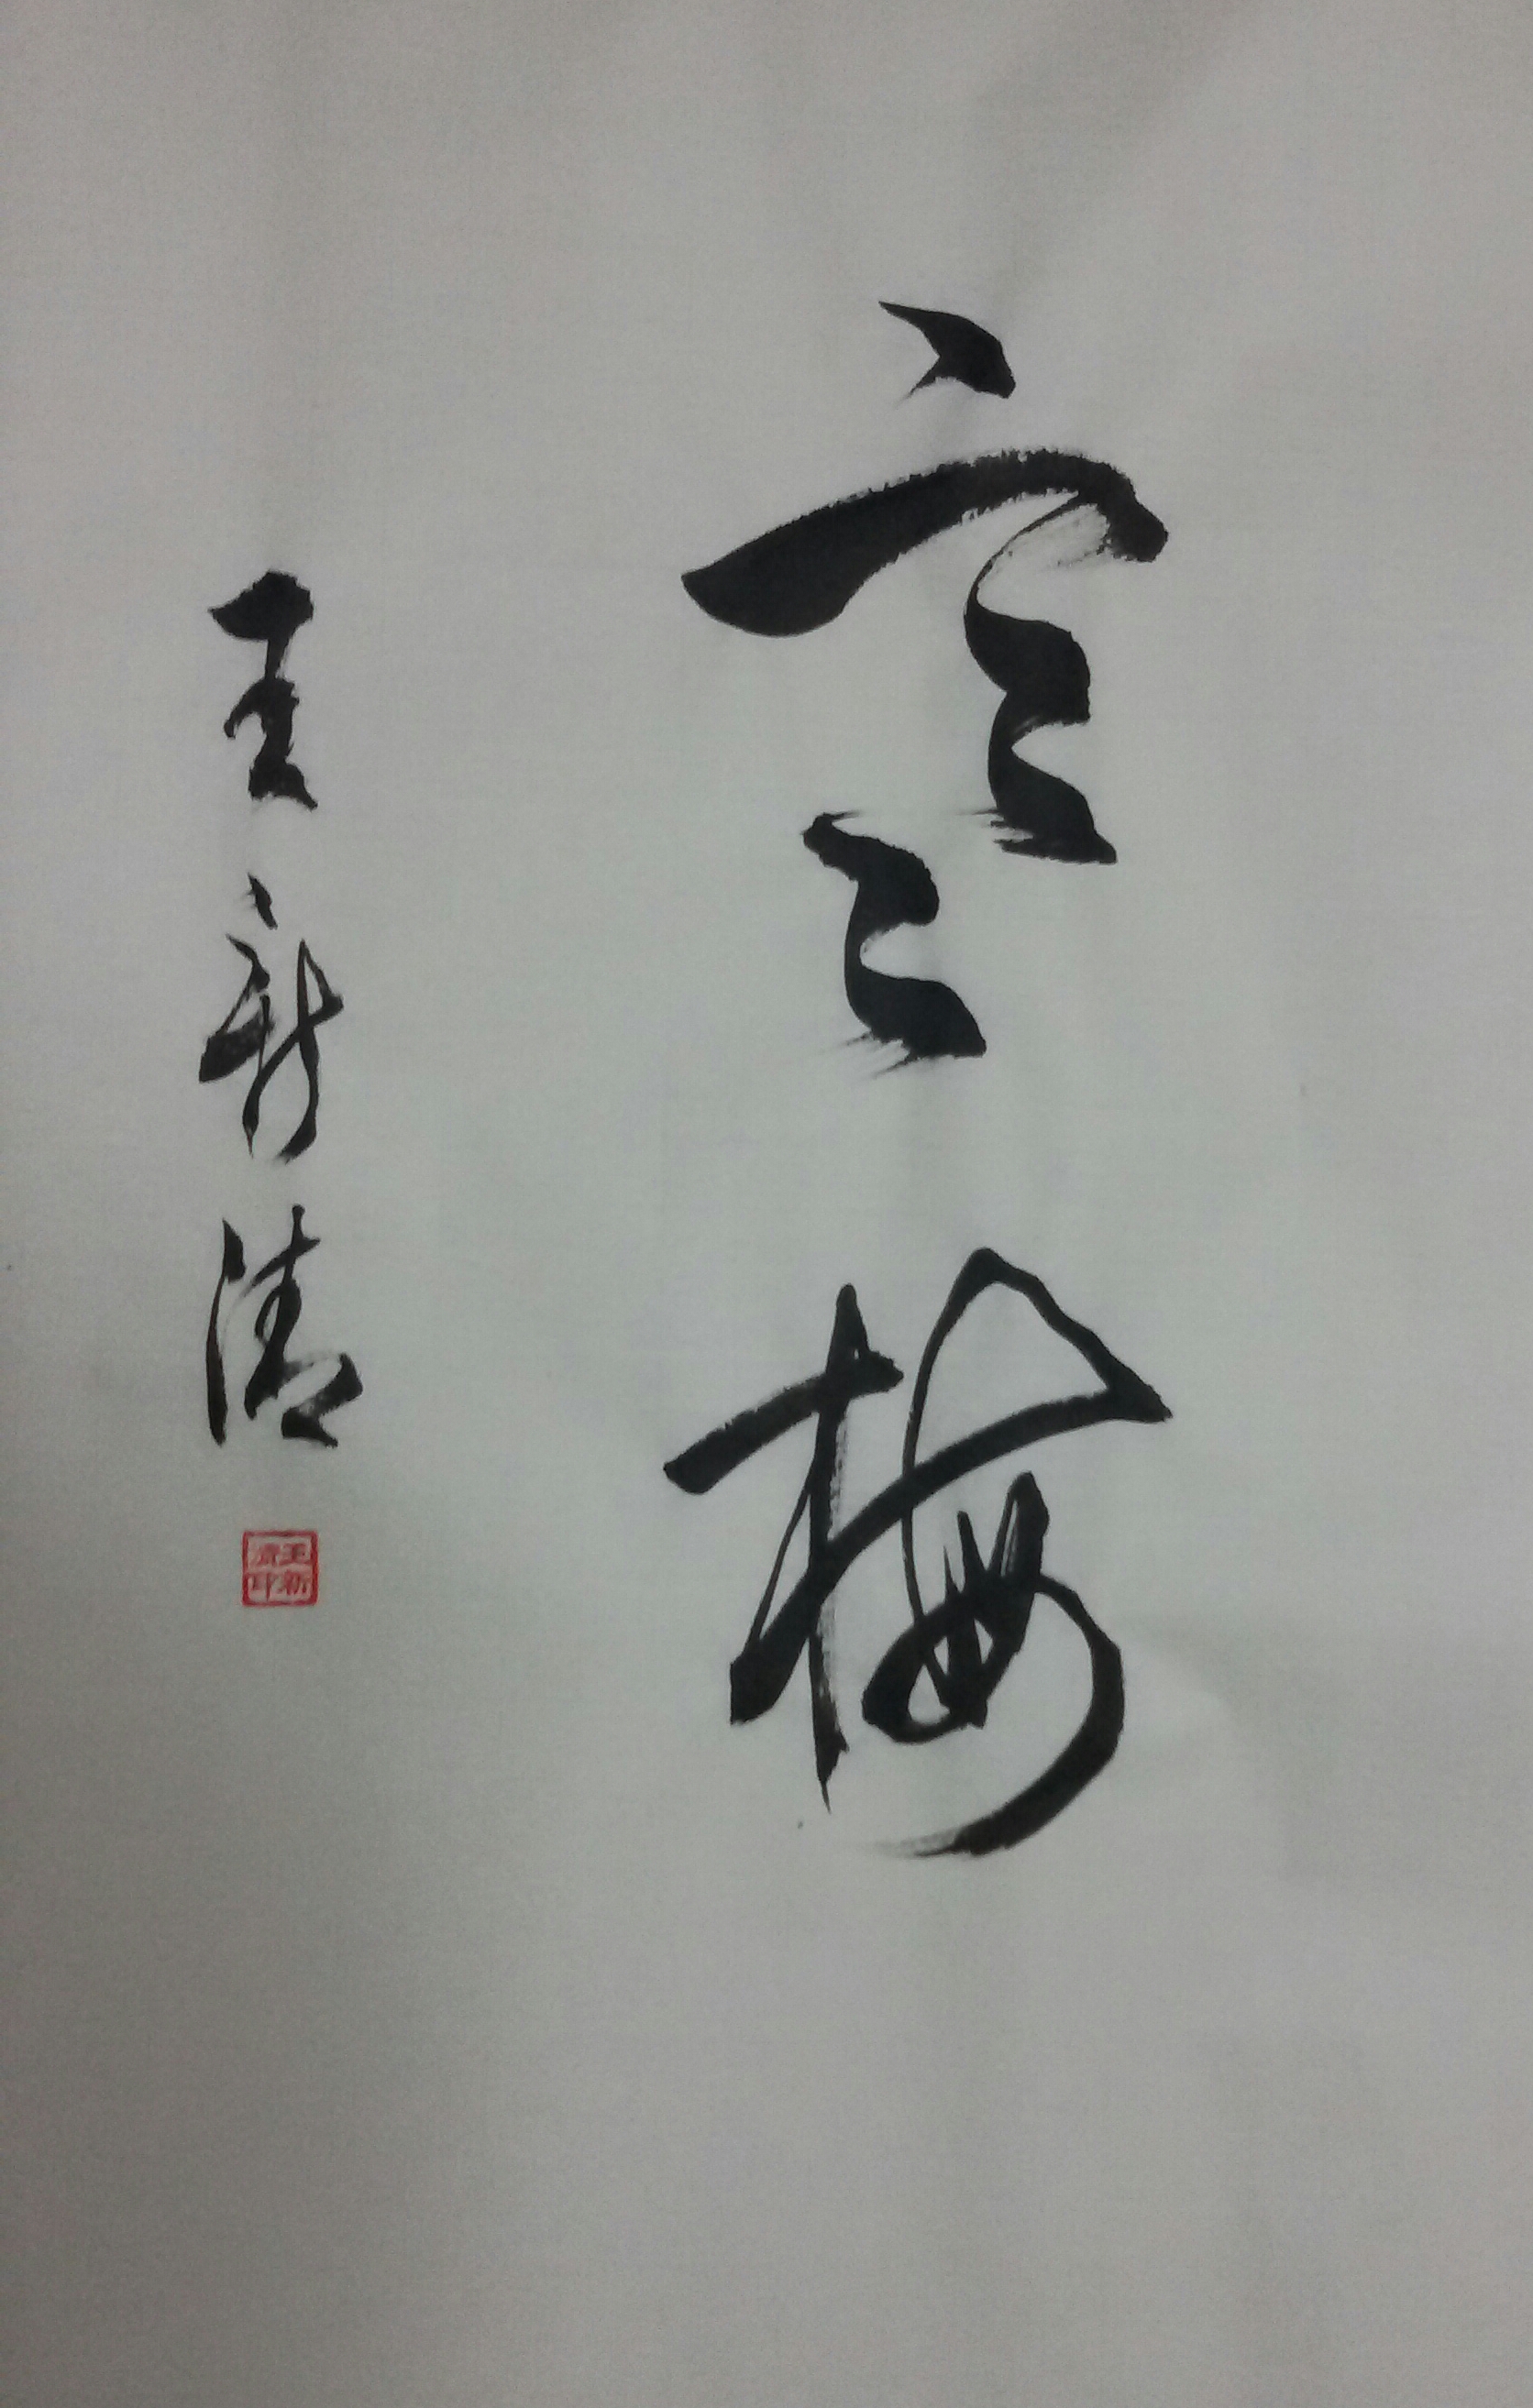 寒梅
王新清
王新
清印